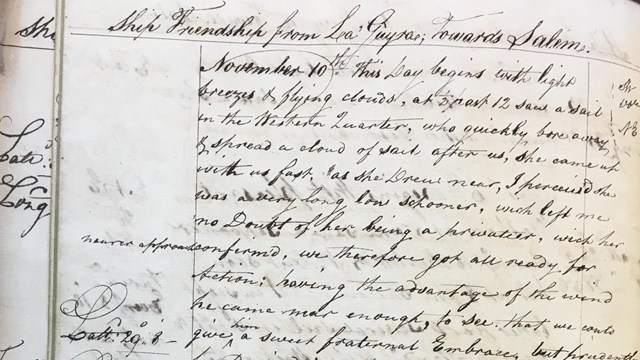 Ship Friendship from La Guyra; Towards Salem.
November 10th This Day begins with light
breezes & flying clouds, at ½ past 12 saw a sail
in the Western Quarter, who quickly bore away
& spread a cloud of sail after us, she came up
with us fast, as she Drew near, I perceiv'd she
was a very long low schooner, wich left me
no Doubt of her being a privateer, wich her
nearer approach confirm'd, we therefore got all ready for
Action; having the advantage of the wind
he came near enough, to see that we could
Latt. 29° 8 -
give him a sweet fraternal Embrace, but prudent
Latt.
Long